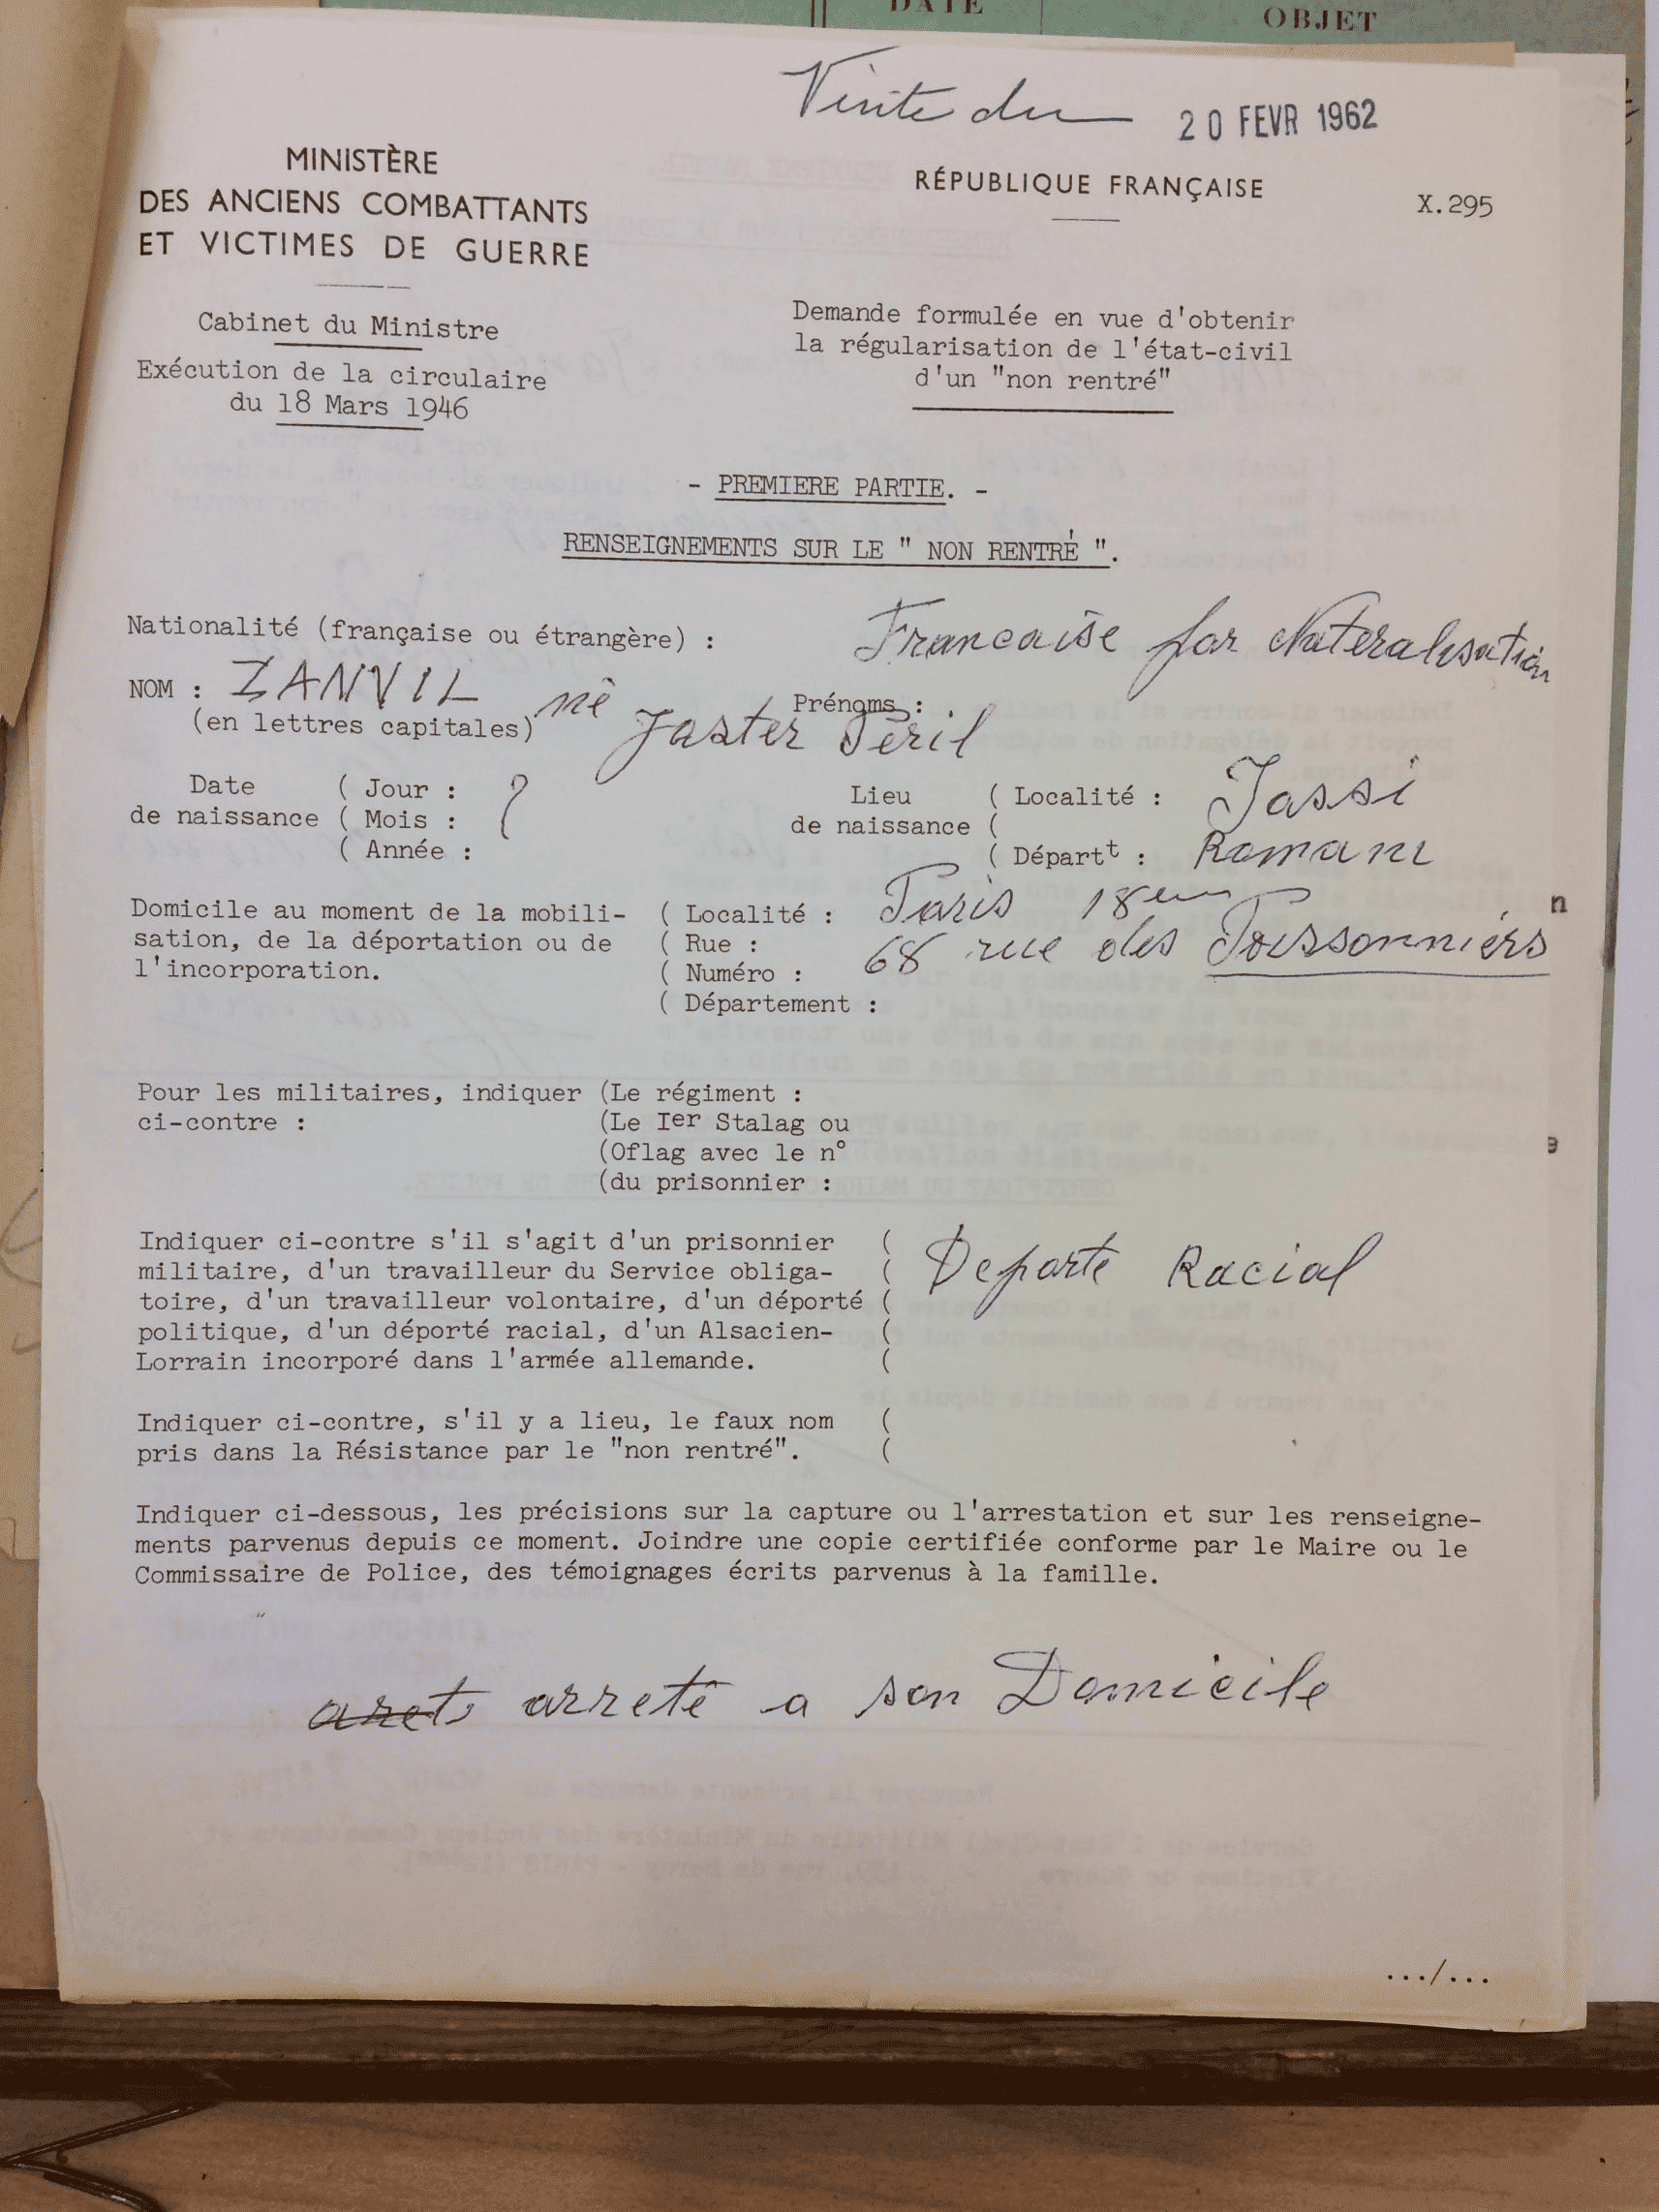 DATE
OBJET
Visite du 20 FEVR 1962
MINISTÈRE
DES ANCIENS COMBATTANTS
ET VICTIMES DE GUERRE
RÉPUBLIQUE FRANÇAISE
X.295
Cabinet du Ministre
Exécution de la circulaire
du 18 Mars 1946
Demande formulée en vue d'obtenir
la régularisation de l'état-civil
d'un "non rentré"
- PREMIERE PARTIE. -
RENSEIGNEMENTS SUR LE " NON RENTRÉ ".
Nationalité (française ou étrangère) : Francaise par Nateralisation
NOM : ZANVIL né Prénoms :
(en lettres capitales) Jaster Peril
Date ( Jour : ?
de naissance ( Mois :
( Année :
Lieu ( Localité : Jassi
de naissance (
( Départt : Romani
Domicile au moment de la mobili- ( Localité : Paris 18em
sation, de la déportation ou de ( Rue : 68 rue des Poissonniers
l'incorporation. ( Numéro :
( Département :
Pour les militaires, indiquer (Le régiment :
ci-contre : (Le Ier Stalag ou
(Oflag avec le n°
(du prisonnier :
Indiquer ci-contre s'il s'agit d'un prisonnier ( Departé Racial
militaire, d'un travailleur du Service obliga- (
toire, d'un travailleur volontaire, d'un déporté (
politique, d'un déporté racial, d'un Alsacien- (
Lorrain incorporé dans l'armée allemande. (
Indiquer ci-contre, s'il y a lieu, le faux nom (
pris dans la Résistance par le "non rentré". (
Indiquer ci-dessous, les précisions sur la capture ou l'arrestation et sur les renseigne-
ments parvenus depuis ce moment. Joindre une copie certifiée conforme par le Maire ou le
Commissaire de Police, des témoignages écrits parvenus à la famille.
arreté a son Domicile
.../...